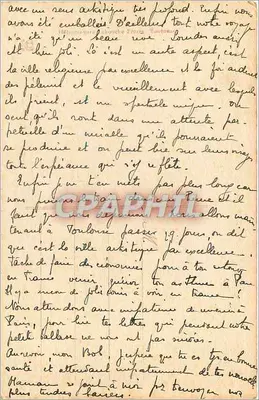 avec un sens artistique très profond. Enfin nous
avons été emballés. D'ailleurs tout notre voyage
n'a été qu'un beau rêve. Lourdes aussi
est bien joli. Ici c'est un autre aspect, c'est
la ville religieuse par excellence et la foi ardente
des pèlerins et le recueillement avec lequel
ils prient, est un spectacle unique. On
sent qu'ils sont dans une attente per-
petuelle d'un miracle qu'ils pourraient
se produire et on peut lire sur leurs visages
toute l'espérance qui s'y reflète.
Enfin je t'en mets pas plus long car
nous
faut que
CAPHILA
tenant à Toulouse passer 2 jours on dit
que c'est la ville artistique par excellence.
Tâche de faire des économies pour à ton retour
en France venir
Il y a moins de jolis coins à voir en France!
Nous attendons avec impatience de revenir à
Paris, pour lire tes lettres qui pensent notre
petit ne nous ont pas suivies.
Au revoir mon Bob, j'espère que tu es tjrs en bonne
santé et attendant impatiemment de tes nouvelles
Maman se joint à moi pr t'envoyer nos
plus tendres baisers.